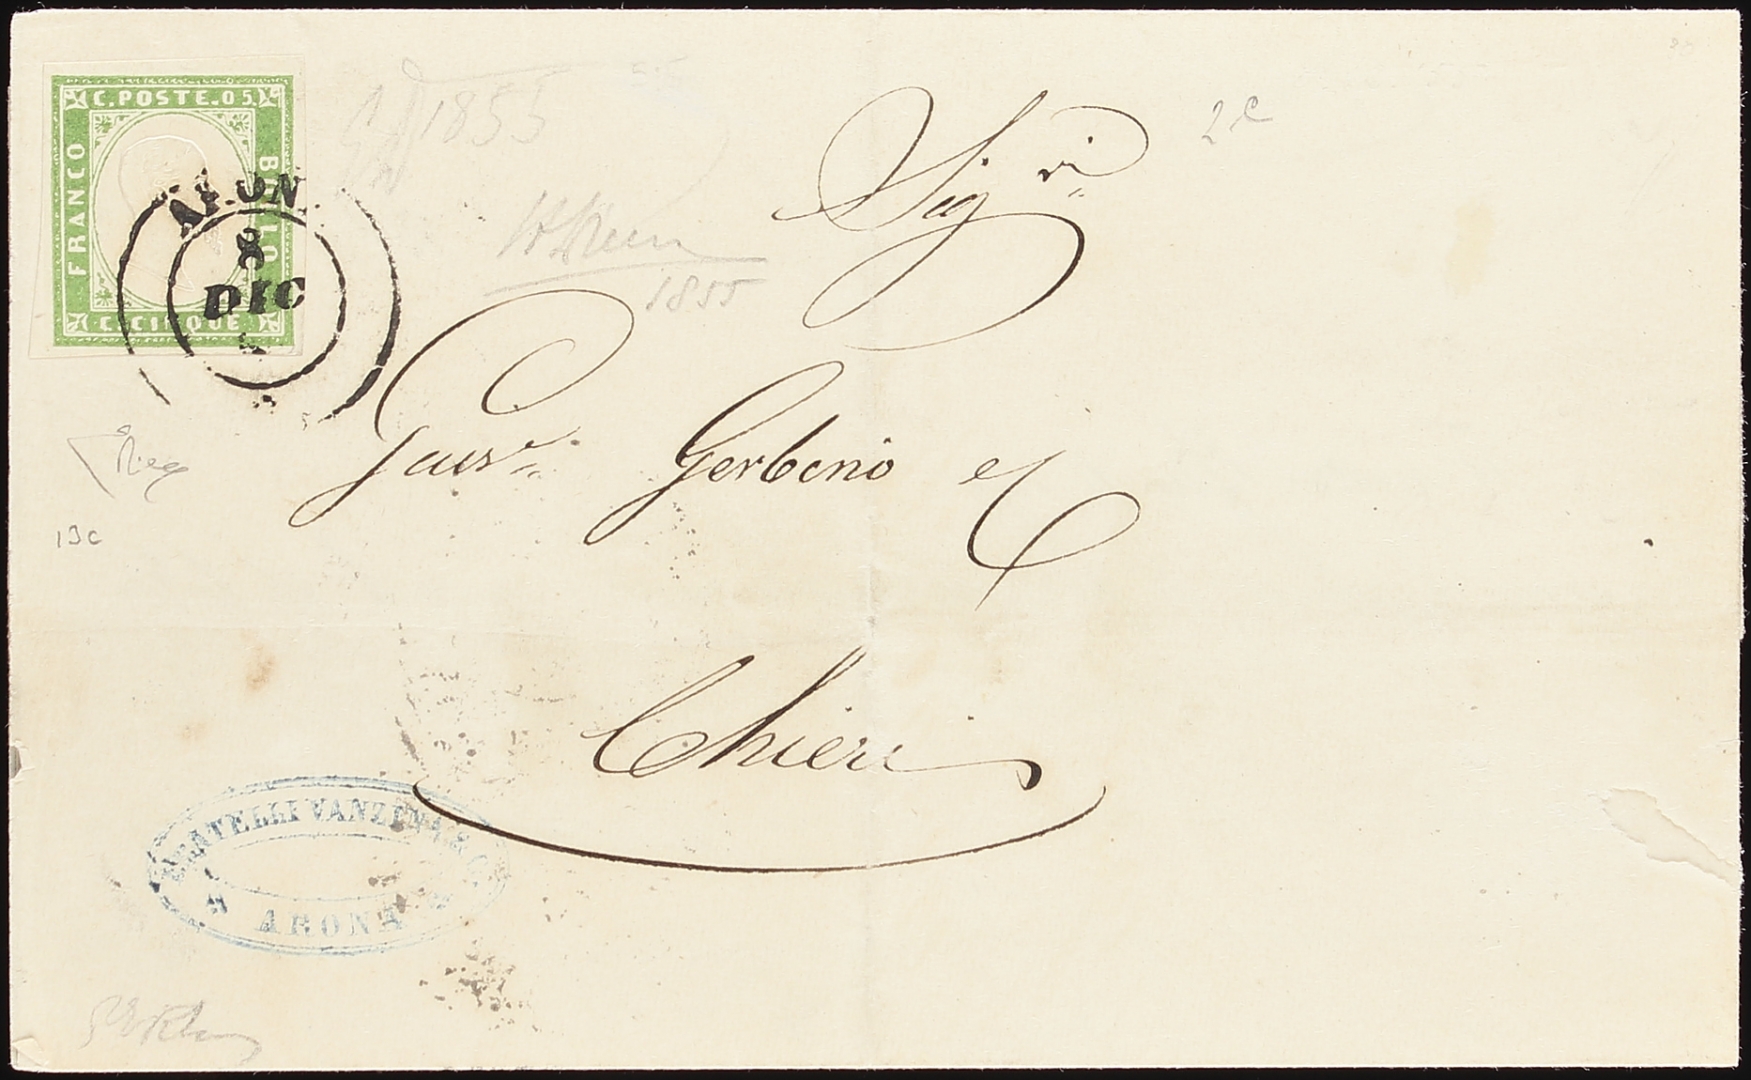 C. POSTE. 05.
FRANCO
BOLLO
C. CINQUE
ARON
8
DIC
1855
1855
2 e
Sigri
Gerbino e C
13c
Chieri
FRATELLI VANZINA & C.
ARONA